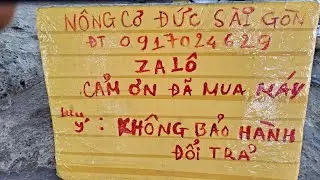 NÔNG CƠ ĐỨC SÀI GÒN
ĐT 0917024629
ZALÔ
CẢM ƠN ĐÃ MUA MÁY
lưu ý : KHÔNG BẢO HÀNH
ĐỔI TRẢ